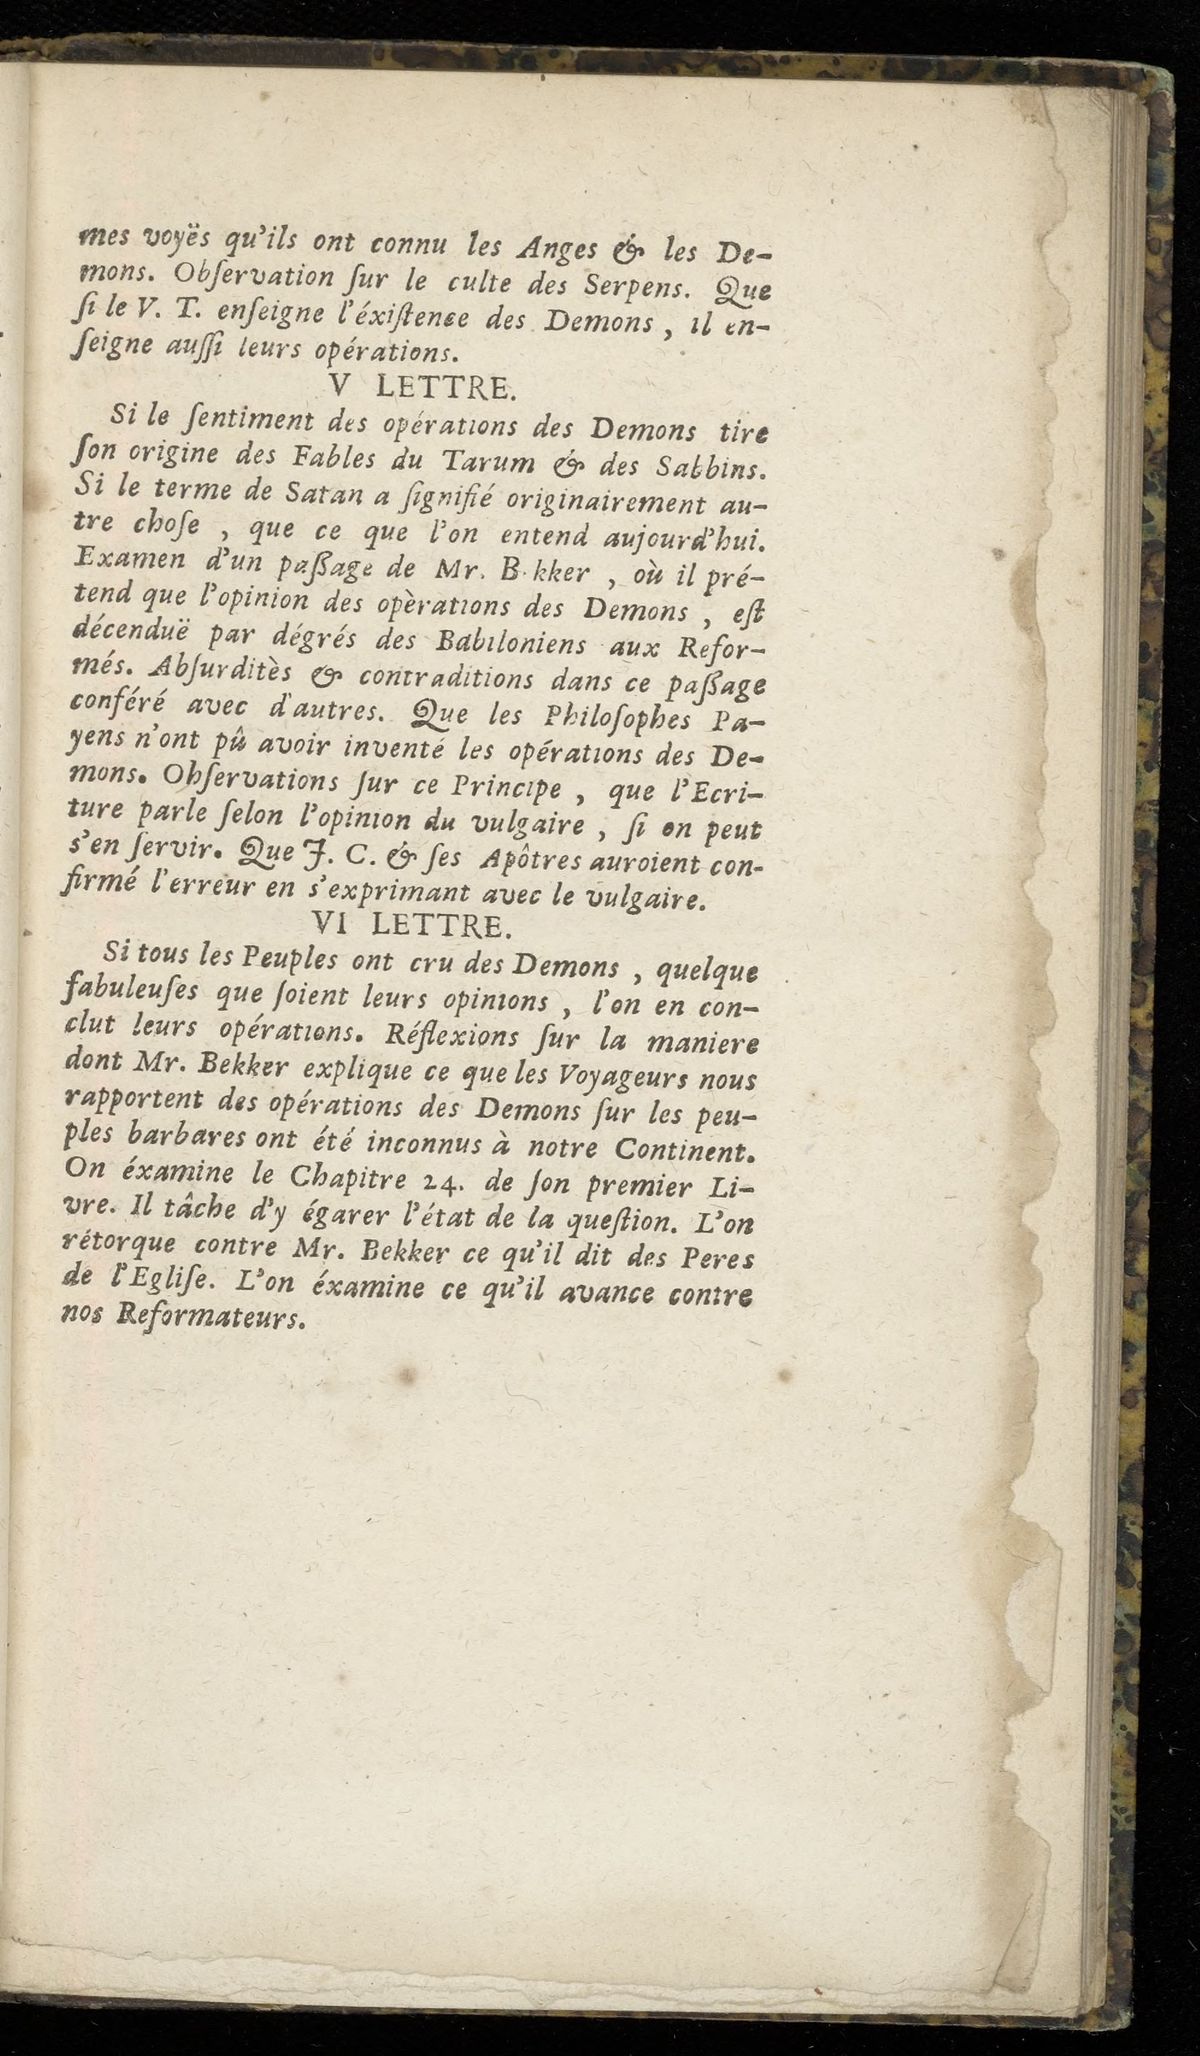 mes voyës qu'ils ont connu les Anges & les De-
mons. Obſervation ſur le culte des Serpens. Que
ſi le V. T. enſeigne l'éxiſtence des Demons, il en-
ſeigne auſſi leurs opérations.
V LETTRE.
Si le ſentiment des opérations des Demons tire
ſon origine des Fables du Tarum & des Sabbins.
Si le terme de Satan a ſignifié originairement au-
tre choſe, que ce que l'on entend aujourd'hui.
Examen d'un paſſage de Mr. B kker, où il pré-
tend que l'opinion des opèrations des Demons, eſt
décenduë par dégrés des Babiloniens aux Refor-
més. Abſurditès & contraditions dans ce paſſage
conféré avec d'autres. Que les Philoſophes Pa-
yens n'ont pû avoir inventé les opérations des De-
mons. Obſervations ſur ce Principe, que l'Ecri-
ture parle ſelon l'opinion du vulgaire, ſi on peut
s'en ſervir. Que J. C. & ſes Apôtres auroient con-
firmé l'erreur en s'exprimant avec le vulgaire.
VI LETTRE.
Si tous les Peuples ont cru des Demons, quelque
fabuleuſes que ſoient leurs opinions, l'on en con-
clut leurs opérations. Réflexions ſur la maniere
dont Mr. Bekker explique ce que les Voyageurs nous
rapportent des opérations des Demons ſur les peu-
ples barbares ont été inconnus à notre Continent.
On éxamine le Chapitre 24. de ſon premier Li-
vre. Il tâche d'y égarer l'état de la queſtion. L'on
rétorque contre Mr. Bekker ce qu'il dit des Peres
de l'Egliſe. L'on éxamine ce qu'il avance contre
nos Reformateurs.